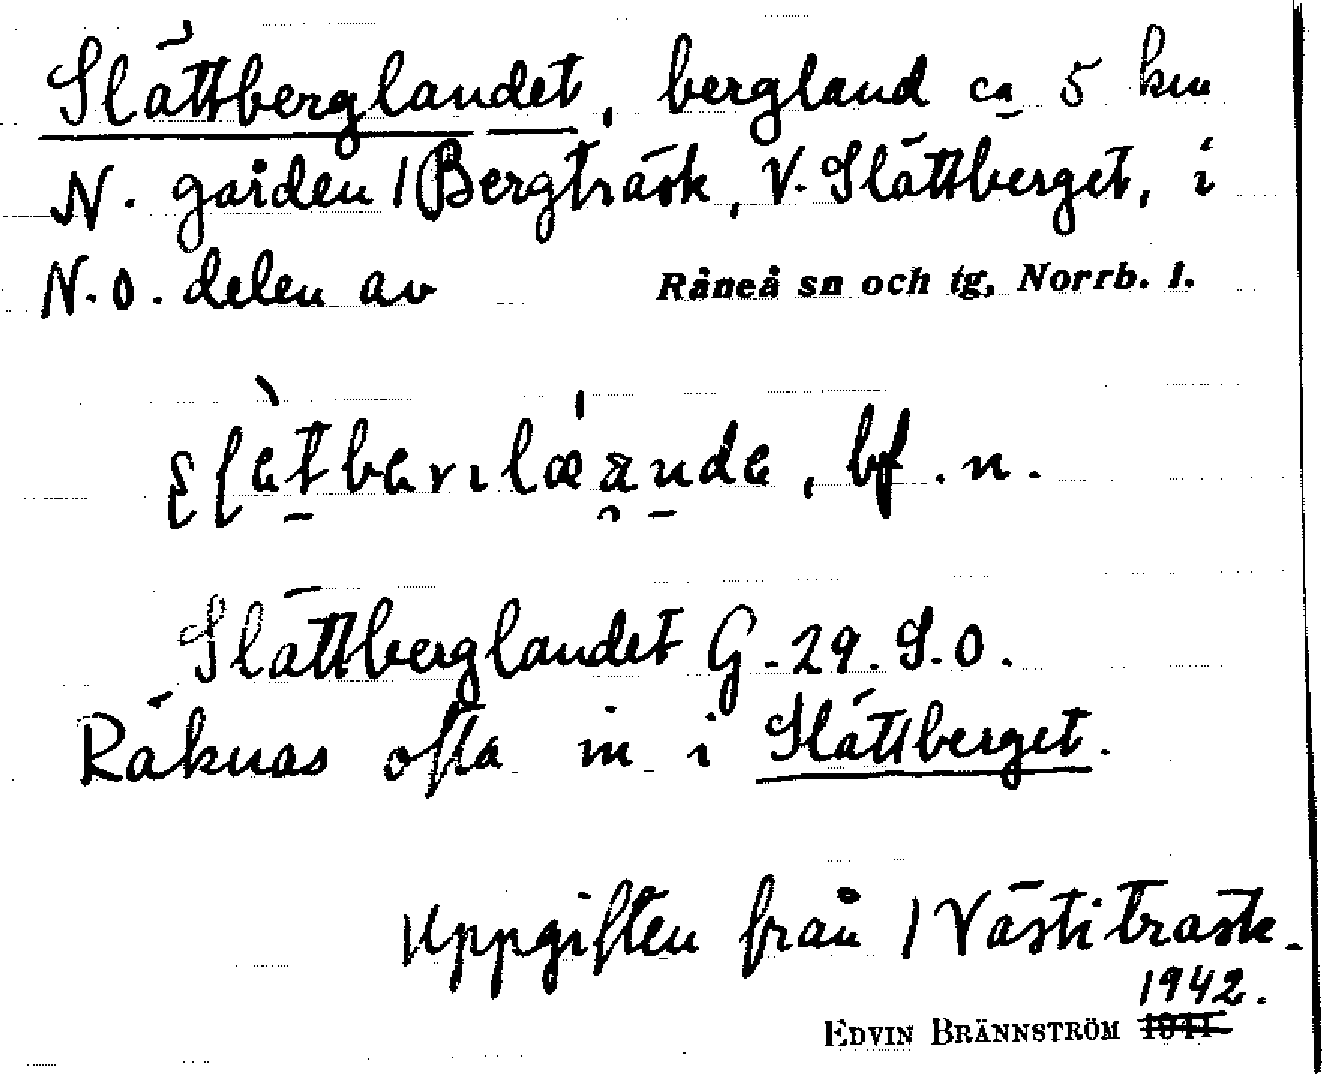 Slättberglandet, bergland ca 5 km
N. gården 1 Bergträsk, V. Slättberget, i
N.O. delen av Råneå sn och tg, Norrb. l.
bf. n.
Slättberglandet G-29. S.O.
Räknas ofta in i Slättberget.
Uppgiften från 1 Västiträsk.
1942.
EDVIN BRÄNNSTRÖM 1941